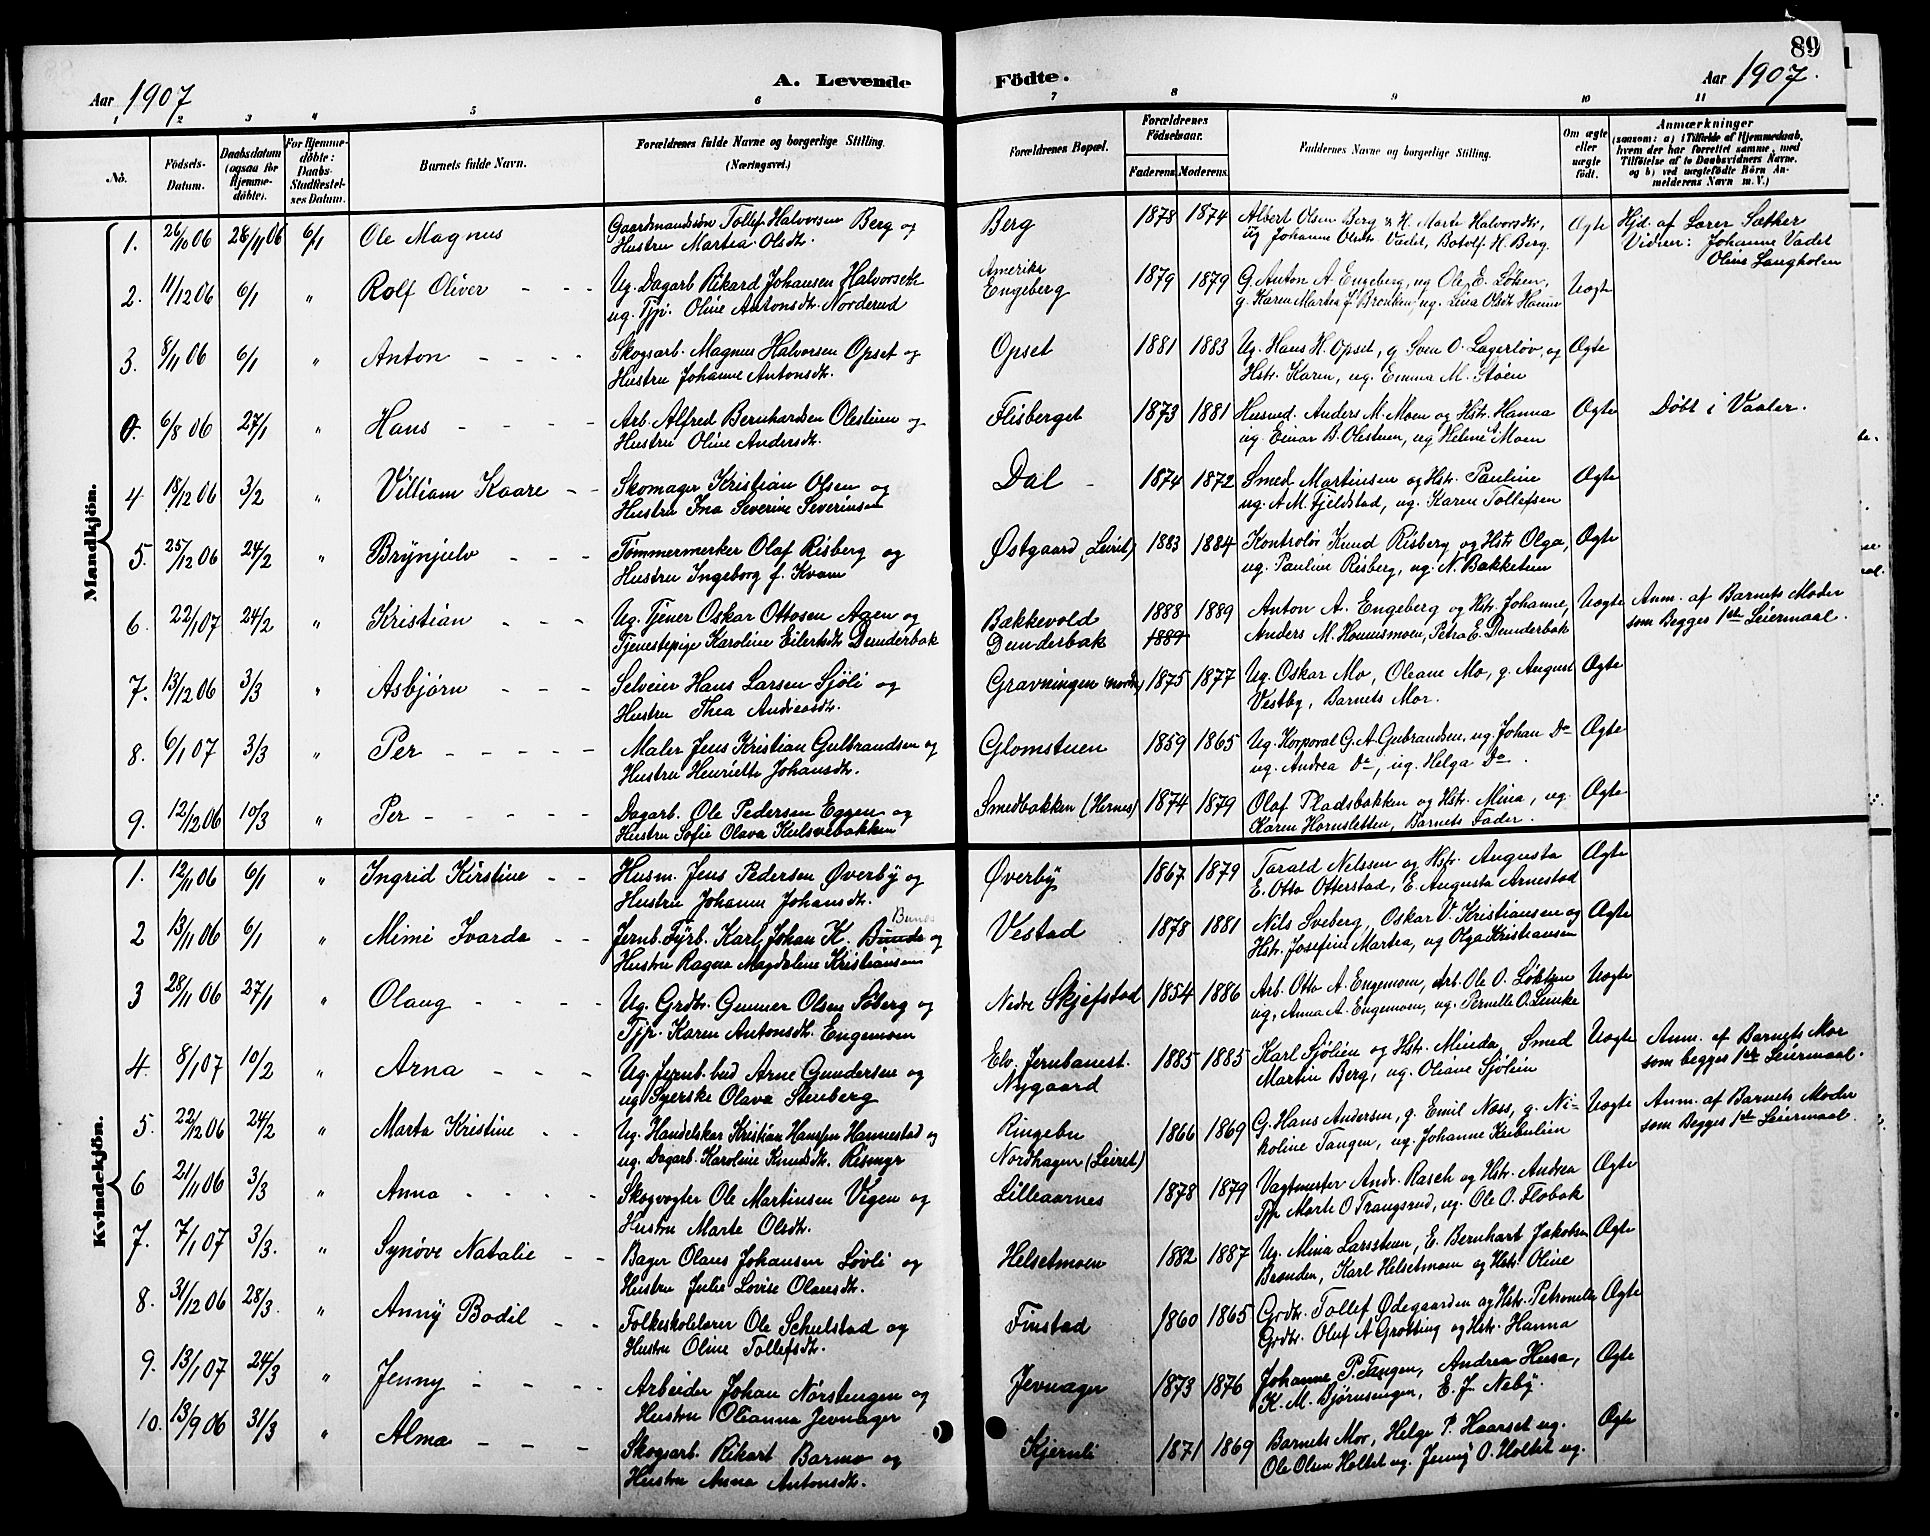 89
Aar 1907 A. Levende Födte. Aar 1907.
1 2 3 4 5 6 7 8 9 10 11
No.
Födsels-Datum.
Daabsdatum (ogsaa for Hjemme-döbte).
For Hjemme-döbte: Daabs-Stadfæstel-ses Datum.
Barnets fulde Navn.
Forældrenes fulde Navne og borgerlige Stilling.
(Næringsvei.)
Forældrenes Bopæl.
Forældrenes Födselsaar.
Faderens. Moderens.
Faddernes Navne og borgerlige Stilling.
Om ægte eller uægte födt.
Anmærkninger
(saasom: a) i Tilfælde af Hjemmedaab, hvem der har forrettet samme, med Tilföielse af to Daabsvidners Navne, og b) ved uægtefödte Börn An-melderens Navn m. V.)
Mandkjön.
1. 26/10 06 28/11 06 6/1 Ole Magnus Gaardmandssön Tollef Halvorsen Berg og Berg 1878 1874 Albert Olsen Berg & H. Marte Halvorsdtr, Ægte Hjd. af Lærer Sæther
Hustru Martea Olsdtr. ug Johanne Olsdtr Vadet, Botolf H. Berg. Vidner: Johanne Vadet
Olius Langholen
2. 11/12 06 6/1 " Rolf Oliver Ug. Dagarb Rikard Johansen Halvorseth Amerika 1879 1879 G. Anton A. Engeberg, ug Ole E. Løken, Uægte
ug. Tjp. Oline Antonsdtr. Norderud Engeberg g. Karen Martea f. Brenken, ug. Lina Olsdt Haanes
3. 8/11 06 6/1 " Anton Skogsarb. Magnus Halvorsen Opset og Opset 1881 1883 Ug. Hans H. Opset, g Sven O. Lagerløv, og Ægte
Hustru Johanne Antonsdtr. Hstr. Karen, ug. Emma M. Støen
0. 6/8 06 27/1 " Hans Arb. Alfred Bernhardsen Olestuen og Flisberget 1873 1881 Husmd. Anders M. Moen og Hstr. Hanna Ægte Döbt i Vaaler.
Hustru Oline Andersdtr. ug. Einar B. Olestuen, ug Helene A. Moen
4. 15/12 06 3/2 " Villiam Kaare Skomager Kristian Olsen og Dal 1874 1872 Smed Martinsen og Hstr. Pauline Ægte
Hustru Ina Severine Severinsen ug. A. M. Fjeldstad, ug. Karen Tollefsen
5. 25/12 06 24/2 " Brynjulv Tømmermerker Olaf Risberg og Østgaard (Leiret) 1883 1884 Kontrolör Knud Risberg og Hstr Olga, Ægte
Hustru Ingeborg f. Kvam ug. Pauline Risberg, ug. N. Bakketun
6. 22/1 07 24/2 " Kristian Ug. Tjener Oskar Ottosen Aaen og Bakkevold 1888 1889 Anton A. Engeberg og Hstr. Johanne, Uægte Anm. af Barnets Moder
Tjenestepige Karoline Eilertsdtr Dunderbak Dunderbak 1889 Anders M. Hommsmoen, Petra E. Dunderbak som Begges 1ste Leiermaal.
7. 13/12 06 3/3 " Asbjørn Selveier Hans Larsen Sjöli og Gravningen (nordre) 1875 1877 Ug. Oskar Mo, Oleane Mo, g. August Ægte
Hustru Thea Andreasdtr. Vestby, Barnets Mor.
8. 6/1 07 3/3 " Per Maler Jens Kristian Gulbrandsen og Glomstuen 1859 1865 Ug. Korporal G. A. Gulbrandsen, ug Johan Do Ægte
Hustru Henriette Johansdtr. ug. Andrea Do, ug. Helga Do.
9. 12/12 06 10/3 " Per Dagarb. Ole Pedersen Eggen og Smedbakken (Hernes) 1874 1879 Olaf Pladsbakken og Hstr. Mina, ug. Ægte
Hustru Sofie Olava Kulsvebakken Karen Hornsletten, Barnets Fader.
Kvindekjön.
1. 12/11 06 6/1 " Ingrid Kirstine Husm. Jens Pedersen Øverby og Øverby 1867 1879 Tarald Nelssen og Hstr. Augusta Ægte
Hustru Johanne Johansdtr. E. Otto Otterstad, E. Augusta Arnestad
2 13/11 06 6/1 " Mimi Ivarda Jernb. Fyrb. Karl Johan K. Bunde og Vestad 1878 1881 Nils Sveberg, Oskar V. Kristiansen og Ægte
Bunes
Hustru Ragna Magdalene Kristiansen Hstr. Josefine Martea, ug Olga Kristiansen
3 28/11 06 27/1 " Olaug Ug. Grdtr. Gunner Olsen Söberg og Nedre Skjefstad 1854 1886 Arb. Otto A. Engemoen, Arb. Ole O. Løkken Uægte
Tjp. Karen Antonsdtr. Engemoen ug. Anna A. Engemoen, ug. Pernille O. Lunke
4. 8/1 07 10/2 " Arna Ug. Jernb. bud Arne Gundersen og Elv. Jernbanest. 1885 1885 Karl Sjölien og Hstr. Minda, Smed Uægte Anm. af Barnets Mor
ug Syerske Olava Stenberg Nygaard Martin Berg, ug. Oliane Sjölien som begges 1ste Leiermaal.
5. 22/12 06 24/2 " Marta Kristine Ug. Handelskar Kristian Hansen Hannestad og Ringebu 1866 1869 G. Hans Andersen, g. Emil Næss, g. Ni- Uægte Anm. af Barnets Moder
ug. Dagarb. Karoline Knudsdtr. Rismyr Nordhagen (Leiret) koline Tangen, ug. Johanne Keibulien som Begges 1ste Leiermaal.
6 21/11 06 3/3 " Anna Skogvogter Ole Martinsen Vigen og Lilleaarnes 1878 1879 Vagtmester Andr. Rasch og Hstr. Andrea Ægte
Hustru Marte Olsdtr. Tjp Marte O Trangsrud, ug. Ole O. Flobak
7. 7/1 07 3/3. " Synöve Natalie Bager Olaus Johansen Løvli og Helsetmoen 1882 1887 Ug. Mina Larsstuen, E. Bernhart Jakobsen Ægte
Hustru Julie Lovise Olausdtr. Brænden, Karl Helsetmoen og Hstr. Oline
8. 31/12 06 28/3. " Anny Bodil Folkeskolelærer Ole Schulstad og Finstad 1860 1865 Grdtr. Tollef Ødegaarden og Hstr. Petronelle Ægte
Hustru Oline Tollefsdtr. Grdtr. Oluf A Grötting og Hstr. Hanna
9. 13/1 07 24/3 " Jenny Arbeider Johan Nörstengen og Jevnager 1873 1876 Johanne P. Tangen, Andrea Husa, Ægte
Hustru Olianna Jevnager K. M. Bjørnsengen, E. J. Næby.
10. 13/9 06 31/3 " Alma Skogsarb. Rikart Barmo og Kjernli 1871 1869 Barnets Mor, Helge P. Haarset ug. Ægte
Hustru Anna Antonsdtr. Ole Olsen Holtet ug. Jenny O. Holtet ug.